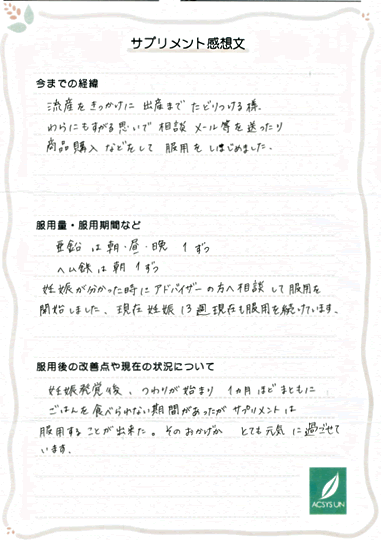 サプリメント感想文
今までの経緯
流産をきっかけに 出産まで たどりつける様、
わらにもすがる思いで 相談 メール等を送ったり
商品購入 などをして 服用を しはじめました。
服用量・服用期間など
亜鉛 は 朝・昼・晩 1ずつ
ヘム鉄 は 朝 1ずつ
妊娠が分かった時に アドバイザーの方へ相談して服用を
開始しました。現在 妊娠 13週 現在も服用を続けています。
服用後の改善点や現在の状況について
妊娠発覚後、つわりが始まり 1カ月 ほど まともに
ごはんを食べられない期間があったが サプリメントは
服用することが出来た。そのおかげか とても元気 に過ごせて
います。
ACSYSUN